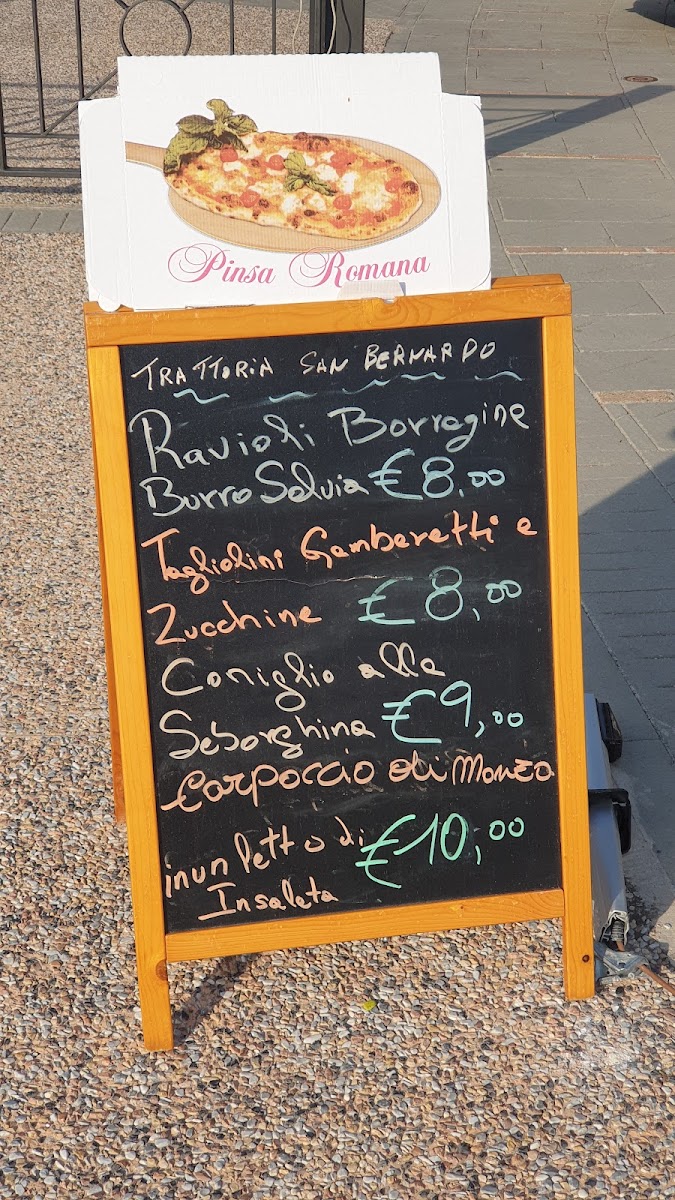 Pinsa Romana
TRATTORIA SAN BERNARDO
Ravioli Borragine
Burro Salvia €8.00
Tagliolini Gamberetti e
Zucchine €8,00
Coniglio alla
Seborghina €9,00
Carpaccio di Manzo
in un letto di €10,00
Insalata